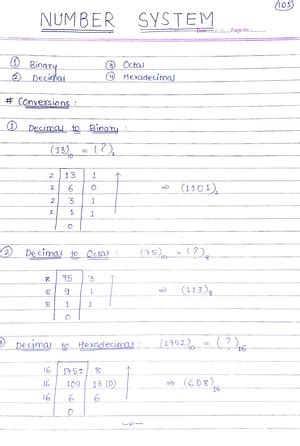 (105)
NUMBER SYSTEM
Date: / / Page No.:
① Binary ③ Octal
② Decimal ④ Hexadecimal
# Conversions :
① Decimal to Binary :
(13)₁₀ = (?)₂
2 13 1
2 6 0
2 3 1 ⇒ (1101)₂
2 1 1
0
② Decimal to Octal : (75)₁₀ = (?)₈
8 75 3
8 9 1 ⇒ (113)₈
8 1 1
0
Decimal to Hexadecimal : (1752)₁₀ = (?)₁₆
16 1752 8
16 109 13 (D) ⇒ (6D8)₁₆
16 6 6
0